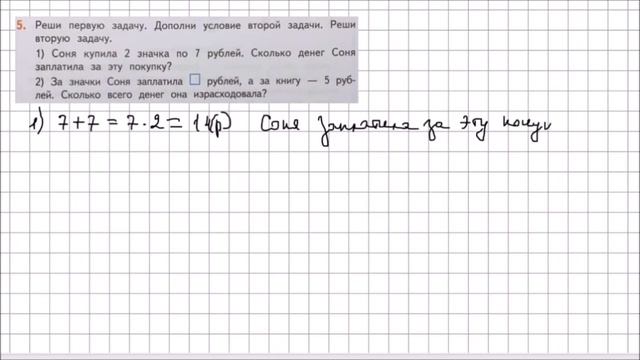 5. Реши первую задачу. Дополни условие второй задачи. Реши
вторую задачу.
1) Соня купила 2 значка по 7 рублей. Сколько денег Соня
заплатила за эту покупку?
2) За значки Соня заплатила □ рублей, а за книгу — 5 руб-
лей. Сколько всего денег она израсходовала?
1) 7+7 = 7·2 = 14(р) Соня заплатила за эту